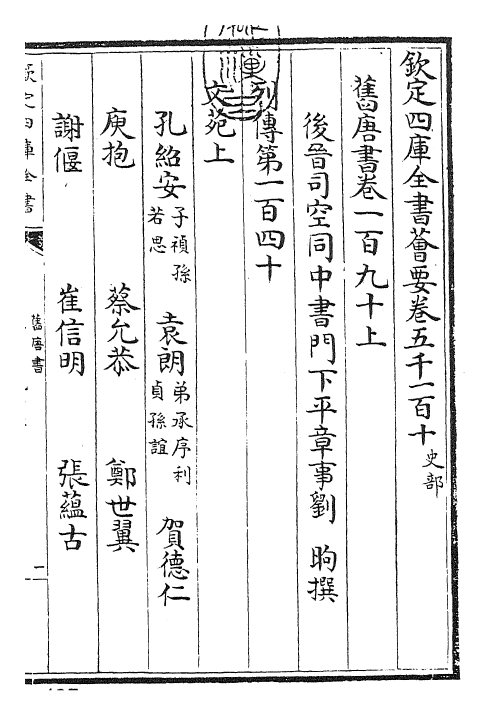 欽定四庫全書薈要卷五千一百十
史部
舊唐書卷一百九十上
後晉司空同中書門下平章事劉昫撰
列傳第一百四十
文苑上
孔紹安 子禎孫若思 袁朗 弟承序利貞孫誼 賀德仁
庾抱 蔡允恭 鄭世翼
謝偃 崔信明 張蘊古
欽定四庫全書
舊唐書
二